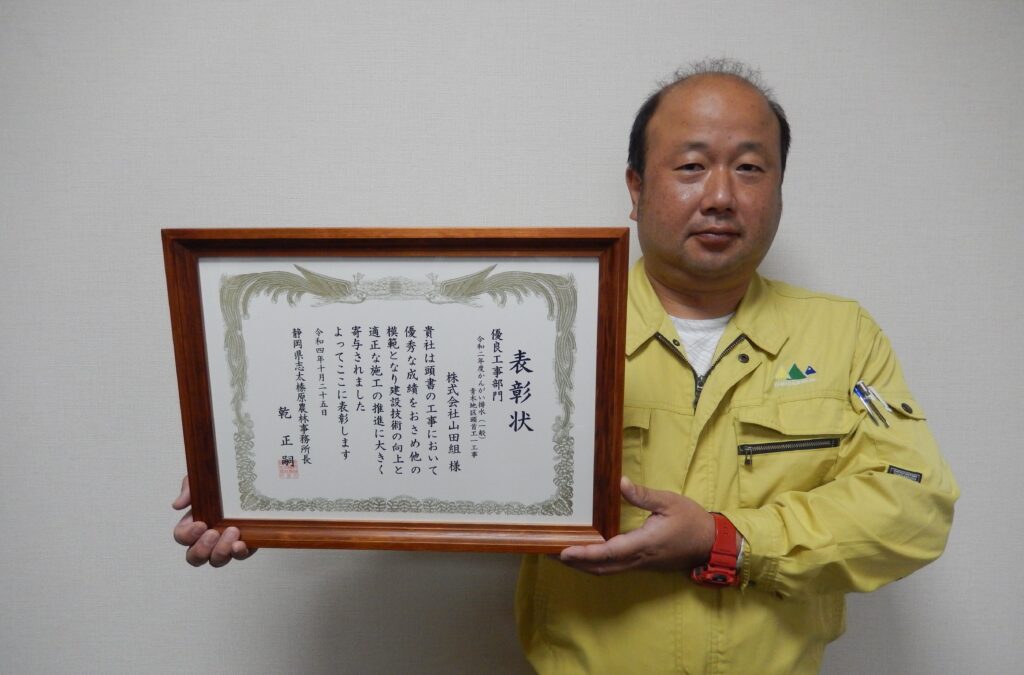 表彰状
優良工事部門
令和二年度かんがい排水(一般)
青木地区頭首工一工事
株式会社山田組 様
貴社は頭書の工事において
優秀な成績をおさめ他の
模範となり建設技術の向上と
適正な施工の推進に大きく
寄与されました
よってここに表彰します
令和四年十月二十五日
静岡県志太榛原農林事務所長
乾 正嗣